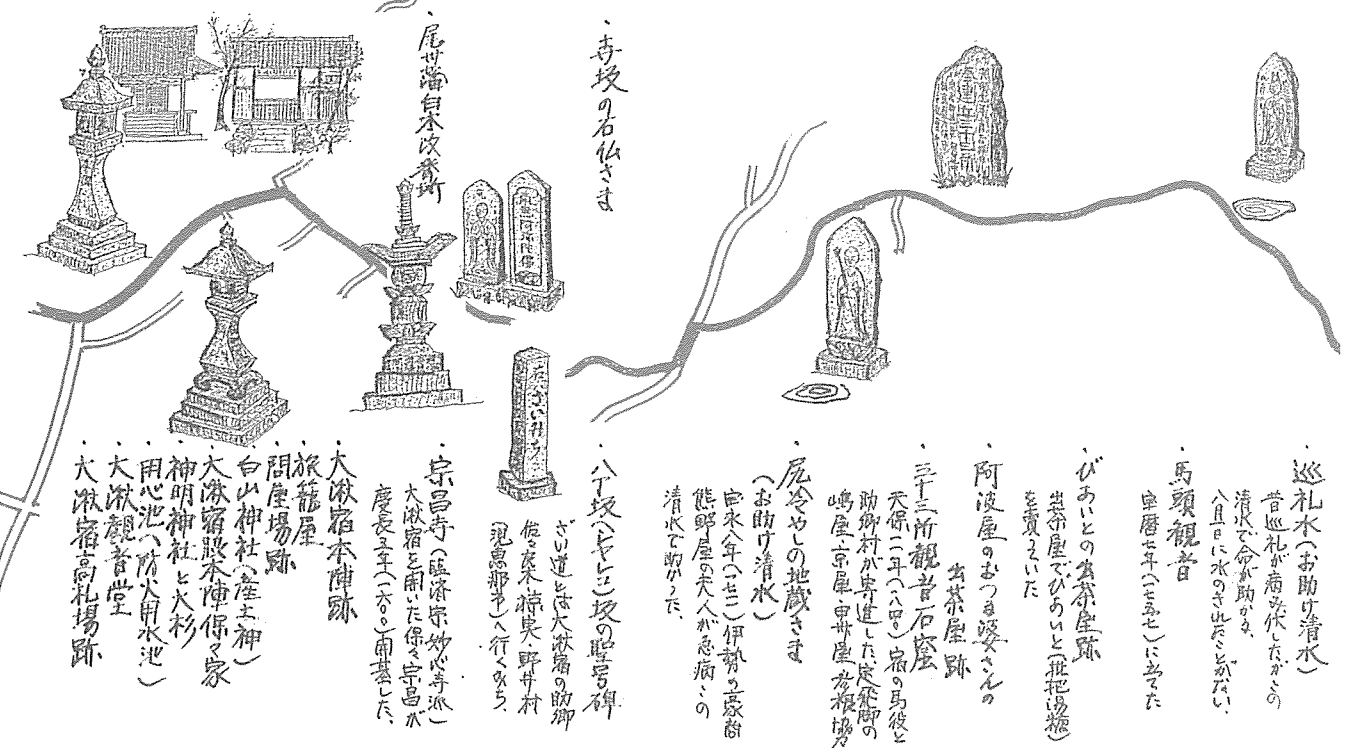 巡礼水(お助け清水)
昔巡礼が病み伏したがこの
清水で命が助かる、
八月一日に水のきれたことがない、
馬頭観音
宝暦七年(一七五七)に立てた
びあいとの出茶屋跡
出茶屋でびあいと(枇杷湯糖)
を賣っていた
阿波屋のおつる婆さんの
出茶屋跡
三十三所観音石窟
天保十一年(一八四〇)宿の馬役と
助郷村が寄進した、定飛脚の
嶋屋、京屋、甲州屋
尻冷やしの地蔵さま
(お助け清水)
宝永八年(一七一一)伊勢の豪商
熊野屋の夫人が急病この
清水で助かった、
寺坂の石仏さま
八丁坂(ベヤレコ)坂の
ざい道とは大湫宿の助郷
佐々良木、椋実、野井村
(現恵那市)へ行くみち、
右ハざいみち
尾州藩白木改番所
南無阿弥陀佛
宗昌寺(臨済宗妙心寺派)
大湫宿を開いた保々宗昌が
慶長五年(一六〇〇)開基した、
大湫宿本陣跡
旅籠屋
問屋場跡
白山神社(産土神)
大湫宿脇本陣保々家
神明神社と大杉
用心池(防火用水池)
大湫観音堂
大湫宿高札場跡